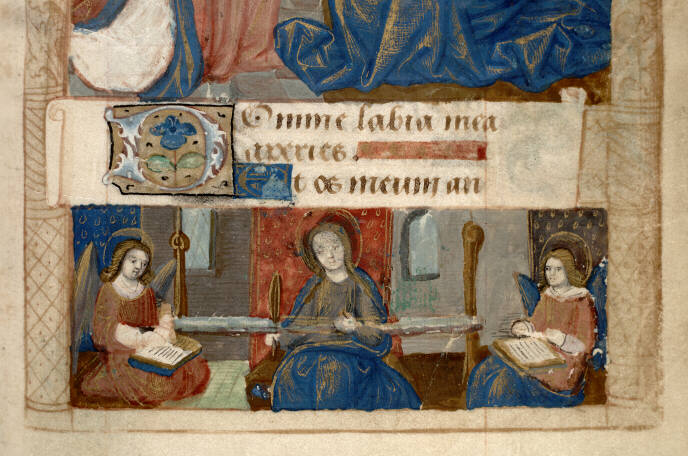 Domine labia mea
aperies.
Et os meum an